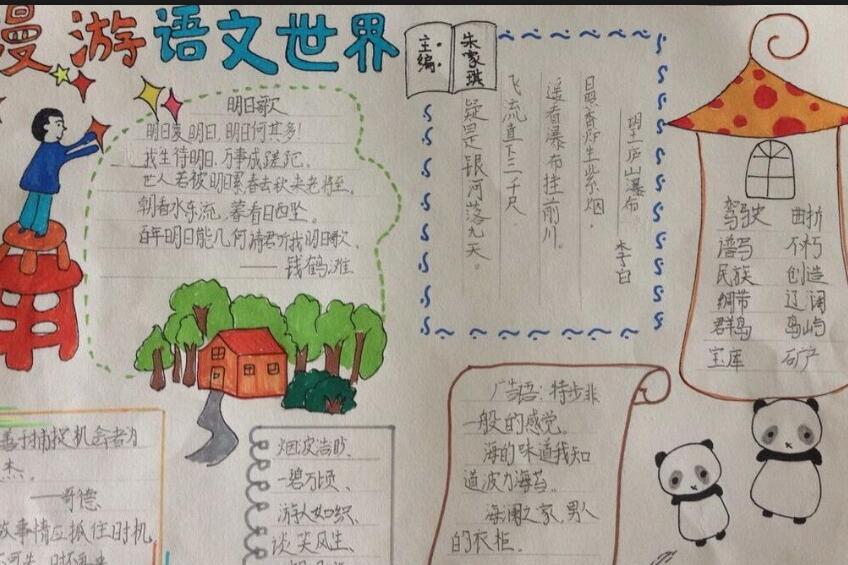 漫游语文世界
主编:
朱家琪
明日歌
明日复明日,明日何其多!
我生待明日,万事成蹉跎。
世人若被明日累,春去秋来老将至。
朝看水东流,暮看日西坠。
百年明日能几何请君听我明日歌。
——钱鹤滩
望庐山瀑布
李白
日照香炉生紫烟,
遥看瀑布挂前川。
飞流直下三千尺
疑是银河落九天。
驾驶 曲折
谱写 不朽
民族 创造
绸带 辽阔
群岛 岛屿
宝库 矿产
善于捕捉机会者为
杰。
——哥德
故事情应抓住时机,
烟波浩眇、
一碧万顷、
游人如织、
谈笑风生、
广告语:特步非
一般的感觉。
海的味道我知
道波力海苔。
海澜之家,男人
的衣柜。